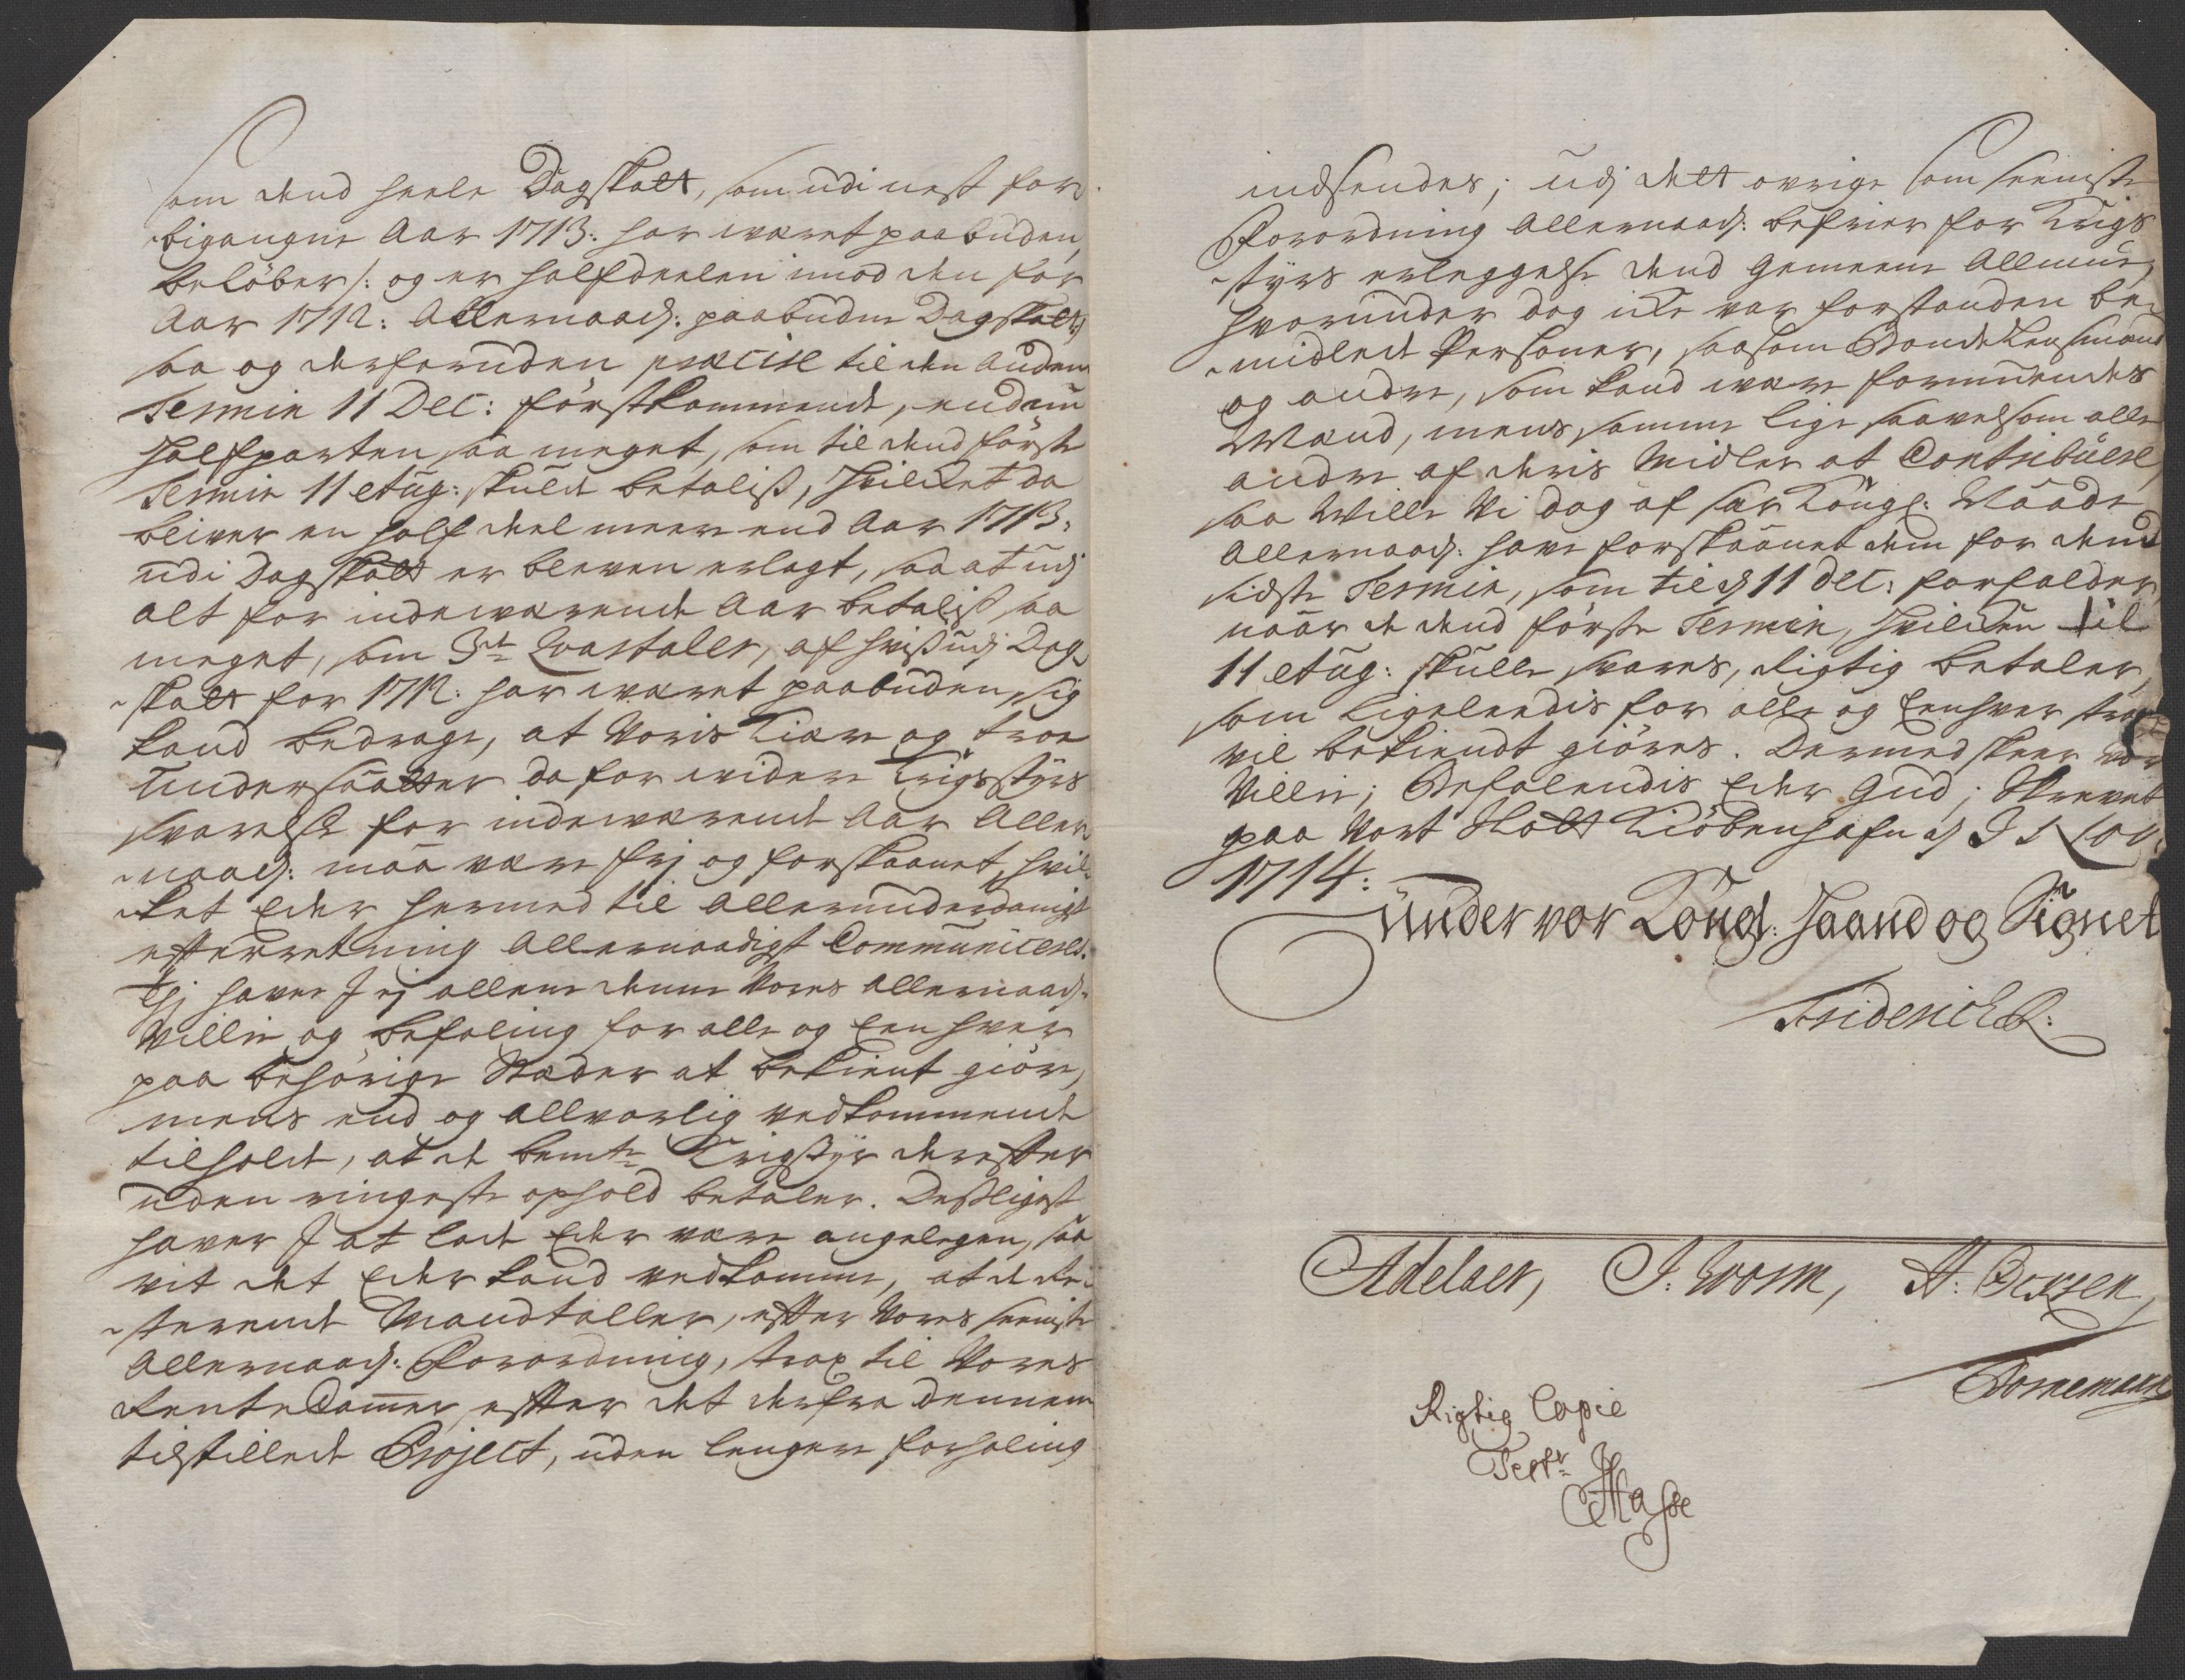 som dend heele Dagskatt, som udi nest for¬
bigangne Aar 1713: har wæret paabuden,
beløber /: og er halfdeelen imod den for
Aar 1712: Allernaad: paabudne Dagskatt,
saa og desforuden præcise til den Anden
Termin 11 Dec: førstkommende, endnu
halfparten saa meget, som til dend første
Termin 11 Aug: skulde betaliß, hvilket da
bliver en half deel meere end Aar 1713:
udi Dagskatt er bleven erlagt, saa at udj
alt for indeværende Aar betaliß saa
meget, som 3de Qvartaler, af hvis udj Dag¬
skatt for 1712: har wæret paabuden, sig
kand bedrage, at Voris Kiære og troe
Undersaatter da for widere Krigsstyrs
svarelse for indeværende Aar Aller¬
naad: maa være frj og forskaanet, hvil¬
ket Eder hermed til allerunderdanigst
efterretning allernaadigst Communiceres.
Thj haver I ej allene denne Vores allernaad:
Villie og befaling for alle og Een hver
paa behørige Stæder at bekient giøre,
mens end og allvorlig vedkommende
tilholde, at de bemte Krigstyr derefter
uden ringeste ophold betaler. Desligest
haver I at lade Eder være angelegen, saa
vit det Eder kand vedkomme, at de Re¬
sterende Mandtaller, efter Vores seeniste
Allernaad: Forordning, strax til Vores
RenteCammer, efter det derfra dennem
tilstillede Project, uden lengere forhaling
indsendes; udj dett øvrige som seeniste
Forordning Allernaad: befrier for Krigs
styrs erleggelse dend Gemeene Allmue,
hvorunder dog icke var forstanden be¬
midlede Personer, saasom Bonde Lensmænd
og andre, som kand være formuendes
Mænd, mens samme lige saavelsom alle
andre af deris Midler at Contribuere,
saa Wille Vi dog af sær Kongl: Naade
Allernaad: have forskaanet dem for dend
sidste Termin, som til d 11 Dec: forfalder,
naar de dend første Termin, hvilken til
11 Aug: skulle svares, Rigtig betaler,
som ligeleedis for alle og Eenhver strax
vil bekiendt giøres. Dermed skeer vor
Villie; Befalendis Eder Gud; Skrevet
paa Vort Slott Kiøbenhafn d
1714:
Under vor Kongl: Haand og Signet
Friderich R:
Adelaer, J: Worm, A:
Bornemann
Rigtig Copie
Testr